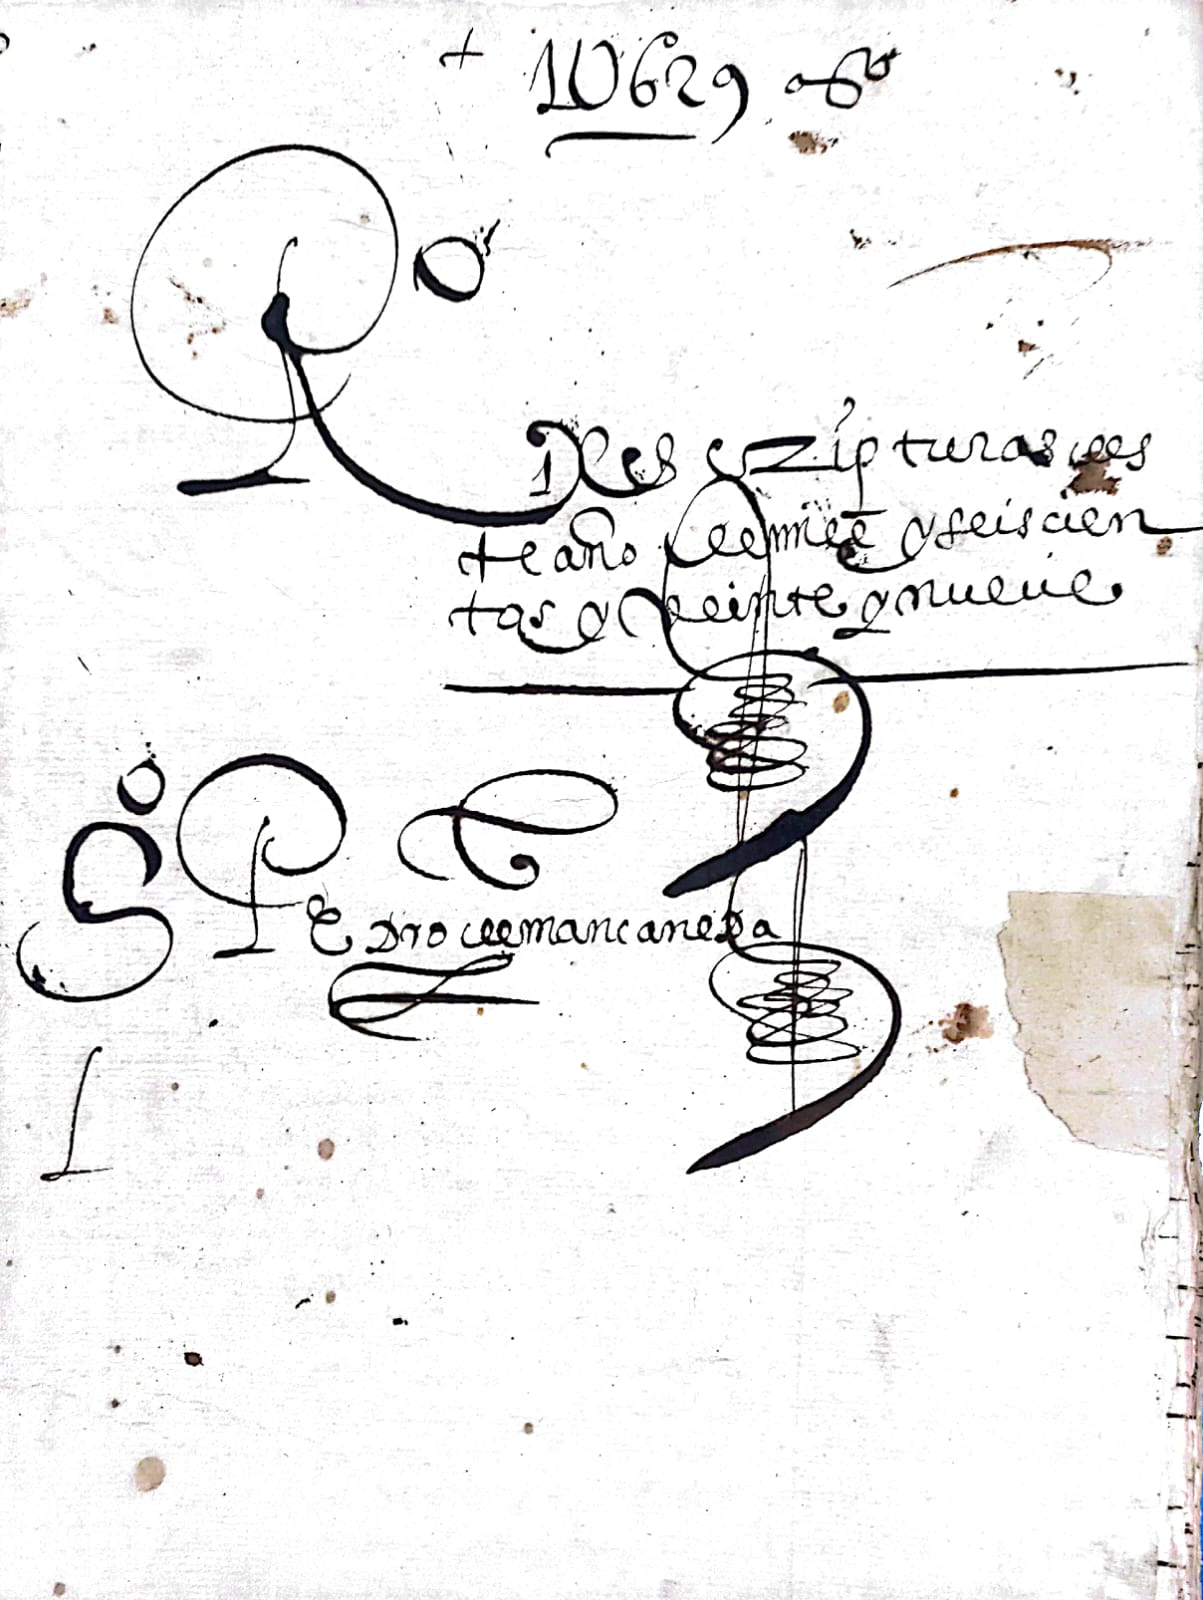 + 1U629 aº
Rº
De es cripturas dees
te año de mill y seiscien
tos y veinte y nueve
S º
Pedro de mancaneda
1